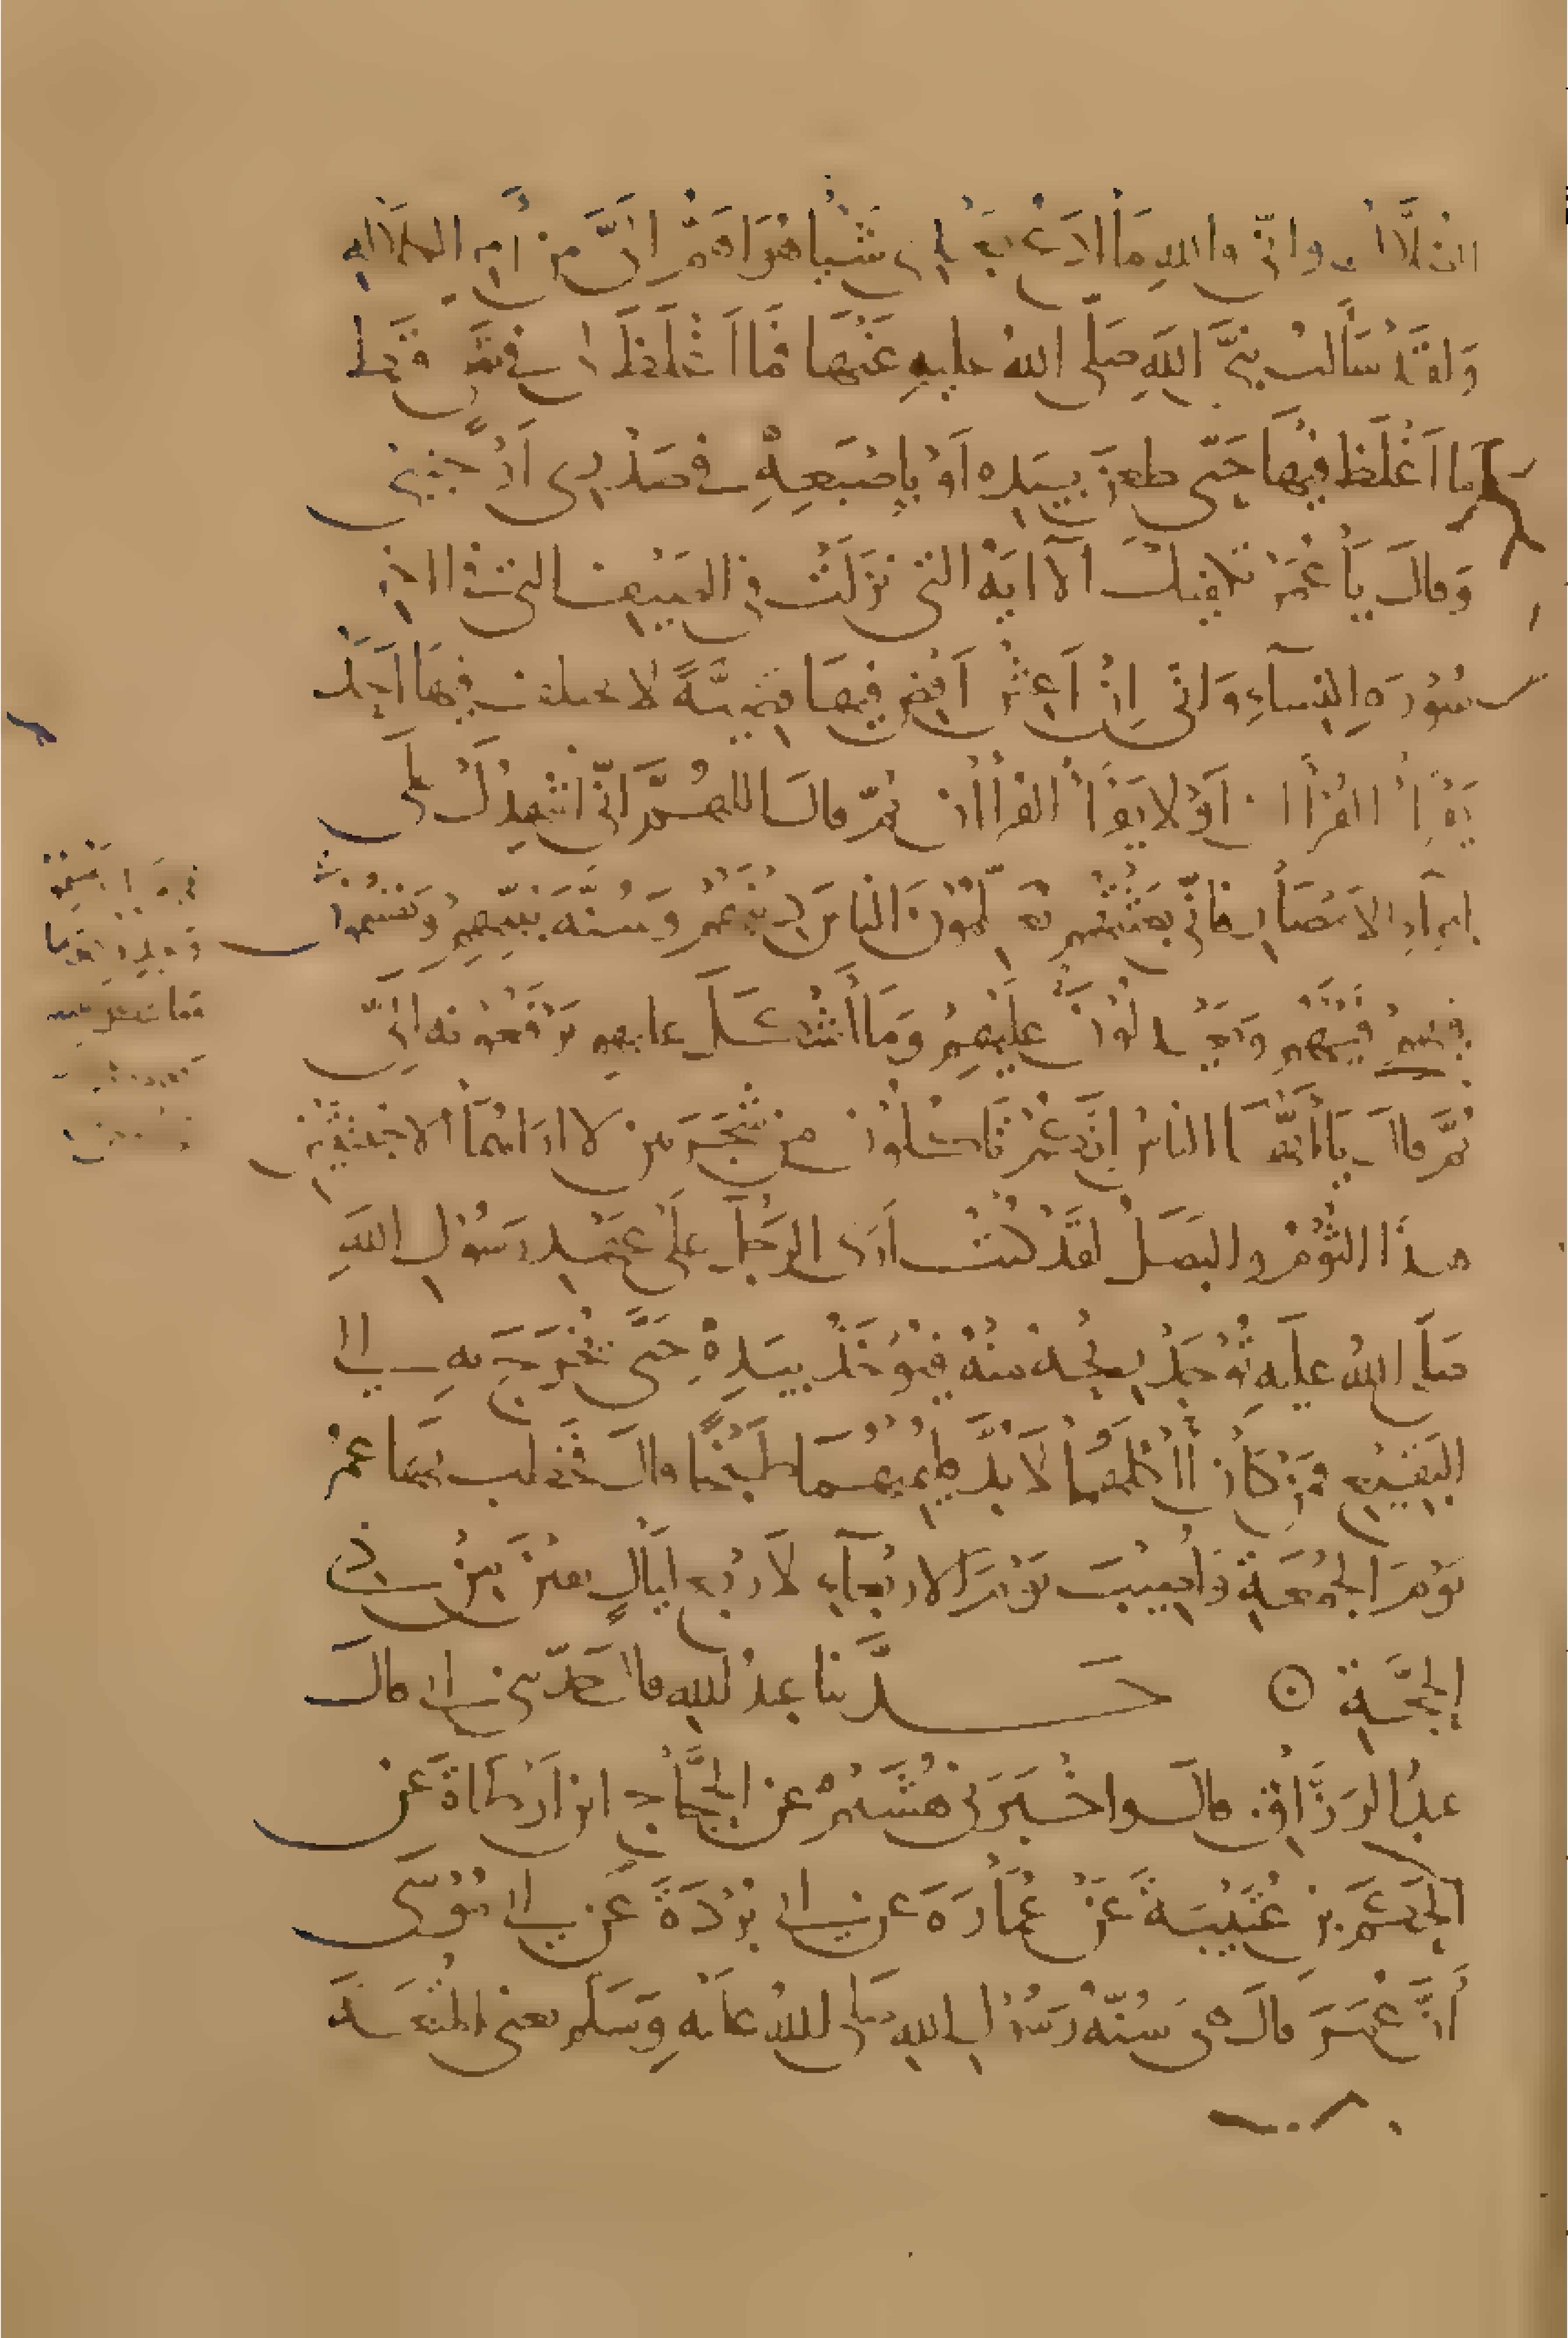 الضلال واني والله ما ادع بعدي شيئا هو اهم الي من امر الكلالة
وَلقد سَألت نبيَّ اللهِ صَلّى اللهُ عليهِ عَنها فَما اَغلَظَ لي في شي قط
ما اَغْلَظ فيها حَتّى طعن بيده اَوْ بإصْبَعِهِ في صَدْري اَوْ جَنبي
وَقالَ يَا عُمَرُ تكفيك الآيَة التي نزلَتْ في الصيف التي في اخر
سُورَةِ النِساءِ وَاني اِنْ اَعِشْ اَقضِ فيهَا قضِيَّةً لا يختلف فيها اَحَد
يَقرأ القُرْان اَوْ لا يَقرَأ القرْان ثمّ قال اللهُمَّ اَنّي اشهدك على
امراءِ الامْصَار فانّي بعَثتهم يُعَلّمُونَ الناسَ دِينَهُمْ وَسُنَّةَ نبيّهِمْ وَيقسمُوا
فيهم فَيْئَهُم وَيعدِلُونَ عليْهِمْ وَمَا أشكَلَ عليهم يَرْفَعُونه اليَّ
ثمَّ قال يَا اَيُّهَا الناسُ اِنّكُمْ تَاكُلُونَ من شَجَرَتين لا ارَاهُما الا خبيثتين
هذا الثُّوْمُ والبَصَلُ لقدْ كُنتُ اَرَى الرَجُلَ عَلَى عَهْدِ رَسُولِ اللهِ
صَلّى اللهُ عليهِ تُوجَدُ رِيحُهُ مِنهُ فيُؤخَذُ بِيَدِهِ حَتَّى يُخْرَجَ بهِ الى
البَقِيْعِ فمَنْ كَانَ اكلهُمَا لاَ بُدَّ فليُمِتهُمَا طَبْخًا قال فخطب بها عمر
يَوْمَ الجُمُعَةِ وَاُصِيْبَ يَوْمَ الاربعَاءِ لاَربع ليَالٍ بقينَ من ذي
الحِجَّةِ ⊙ حَدَّثنا عبدُ الله قال حَدّثني ابي قال
عبدُ الرَزَّاق قال واخْبَرَني هُشَيْمٌ عن الحَجَّاج ابن اَرْطَاةَ عَن
الحَكَمِ بن عُتَيْبَةَ عَنْ عُمَارَةَ عن ابي بُرْدَةَ عَن ابي مُوْسَى
أنَّ عُمَرَ قالَ هيَ سُنّةُ رَسُوْلِ اللهِ صَلى اللهُ عليْهِ وَسَلم يعني المُتعَةَ